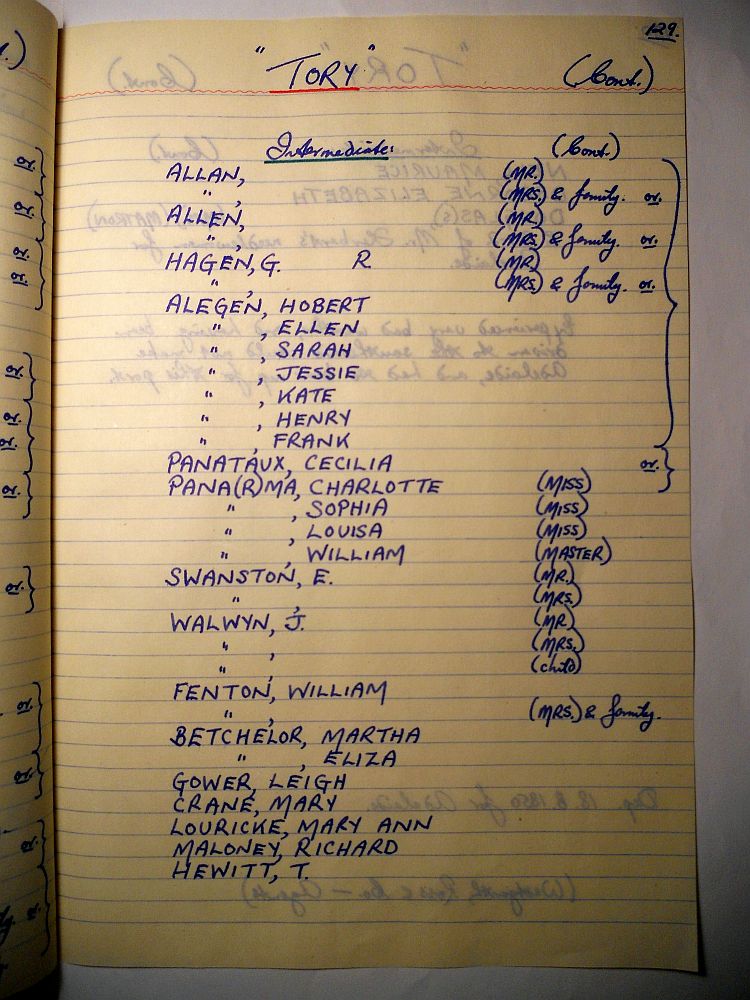 129.
"TORY" (Cont.)
Intermediate: (Cont.)
ALLAN, (MR.)
" , (MRS.) & family. or.
ALLEN, (MR.)
" , (MRS.) & family. or.
HAGEN, G. R (MR.)
" , (MRS.) & family. or.
ALEGEN, HOBERT
" , ELLEN
" , SARAH
" , JESSIE
" , KATE
" , HENRY
" , FRANK
PANATAUX, CECILIA or.
PANA(R)MA, CHARLOTTE (MISS)
" , SOPHIA (MISS)
" , LOUISA (MISS)
" , WILLIAM (MASTER)
SWANSTON, E. (MR.)
" , (MRS.)
WALWYN, J. (MR.)
" , (MRS.)
" , (child)
FENTON, WILLIAM
" , (MRS.) & family.
BETCHELOR, MARTHA
" , ELIZA
GOWER, LEIGH
CRANE, MARY
LOURICKE, MARY ANN
MALONEY, RICHARD
HEWITT, T.